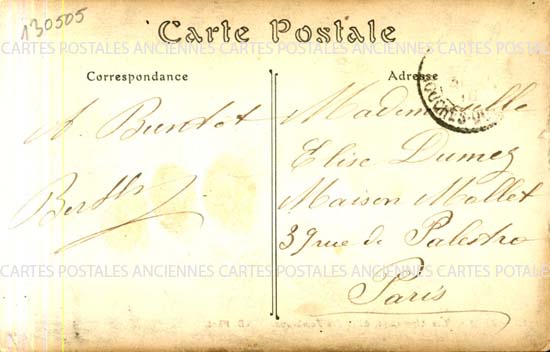 130505
Carte Postale
CARTES POSTALES ANCIENNES CARTES POSTALES ANCIENNES CARTES POSTALES
Correspondance
Adresse
A. Burdet
Mademoiselle
Elise Dumez
Maison Mollet
39 rue de Palestro
Paris
CARTES POSTALES ANCIENNES CARTES POSTALES ANCIENNES CARTES POSTALES